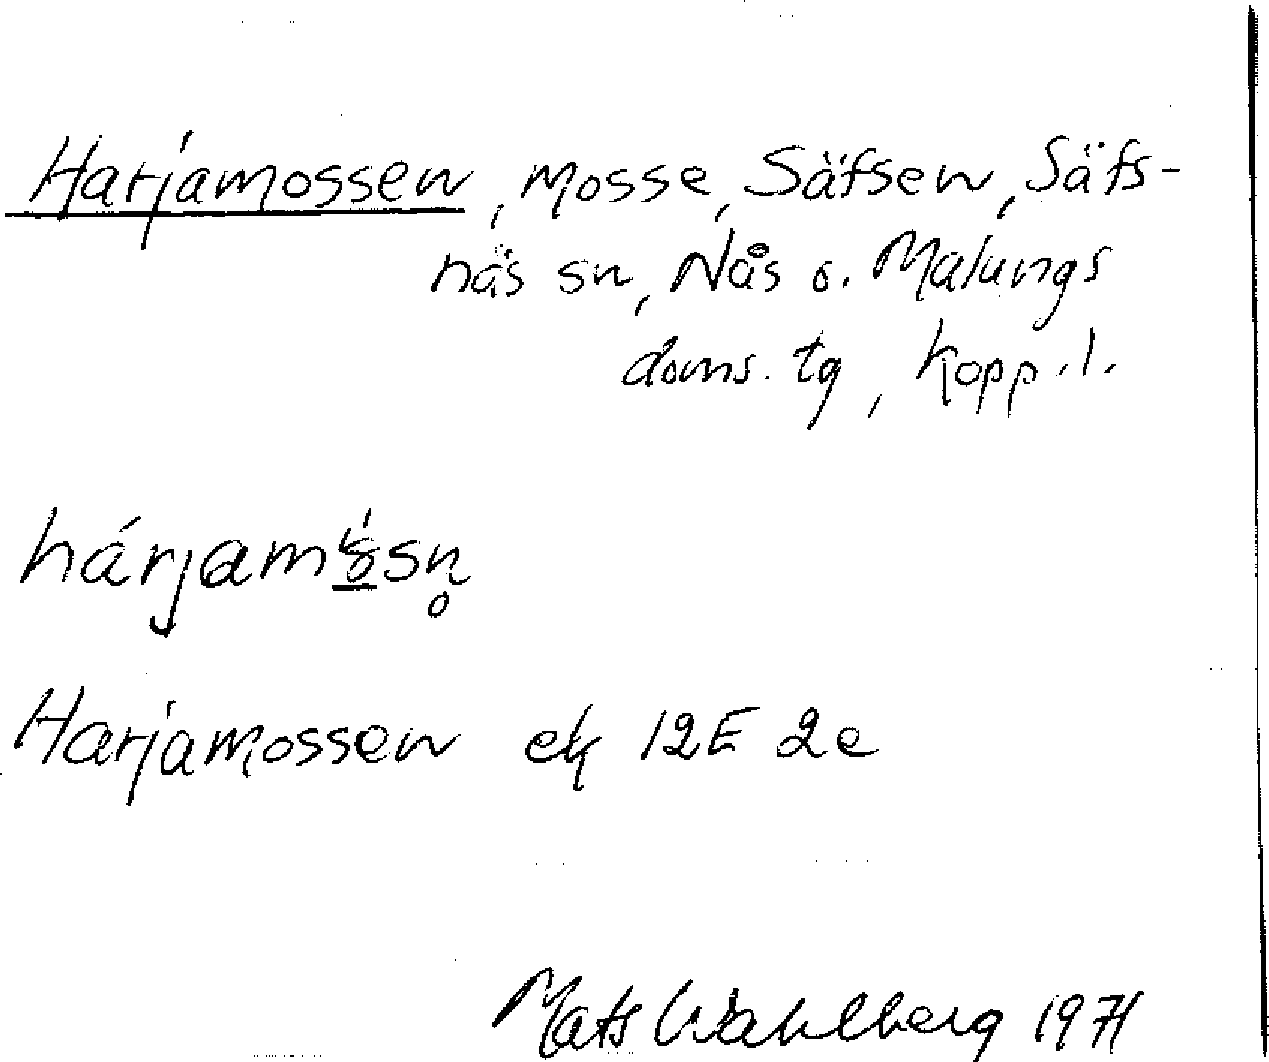 Harjamossen, mosse, Säfsen, Säfs-
näs sn, Nås o. Malungs
doms. tg, Kopp. l.
Harjamossen ek 12E 2e
Mats Wahlberg 1971